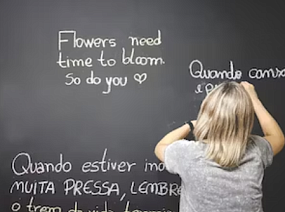 Flowers need
time to bloom.
So do you ♡
Quando
e
Quando estiver
MUITA PRESSA, LEMBRE
o trem da vida